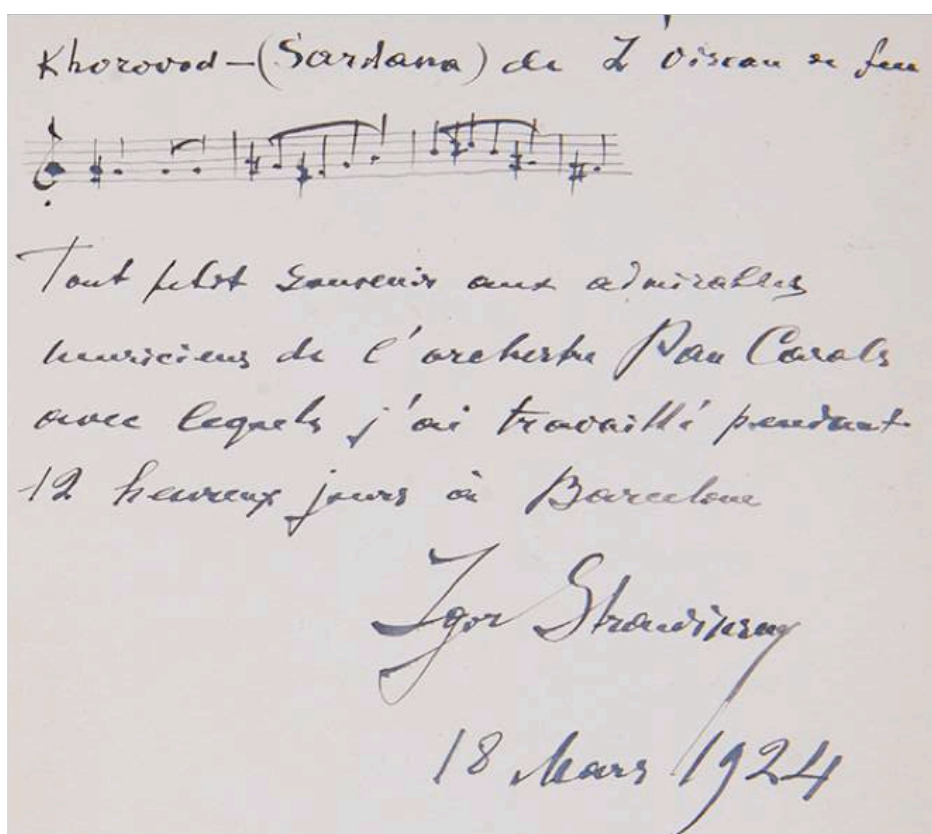 Khorovod-(Sardana) de L'oiseau de feu
Tout petit souvenir aux admirables
musiciens de l'orchestre Pau Casals
avec lequels j'ai travaillé pendant
12 heureux jours à Barcelone
Igor Strawinsky
18 Mars 1924